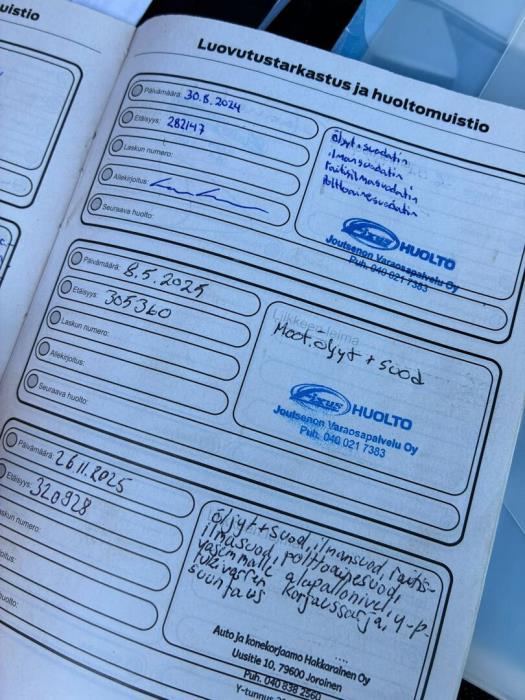 uistio
Luovutustarkastus ja huoltomuistio
Päivämäärä: 30.8.2024
Etäisyys: 282147
Laskun numero:
Allekirjoitus:
Seuraava huolto:
Öljyt + suodatin
ilmansuodatin
raitisilmasuodatin
Polttoainesuodatin
Fixus HUOLTO
Joutsenon Varaosapalvelu Oy
Puh. 040 021 7383
Päivämäärä: 8.5.2025
Etäisyys: 305360
Laskun numero:
Allekirjoitus:
Seuraava huolto:
Liikkeen leima
Moot.öljyt + suod
Fixus HUOLTO
Joutsenon Varaosapalvelu Oy
Puh. 040 021 7383
Päivämäärä: 26.11.2025
Etäisyys: 320928
askun numero:
oitus:
huolto:
öljyt + suod, ilmansuod, raitis-
ilmasuod, polttoainesuod,
vasemmalle alapallonivel, y-p-
korjaussarja,
suuntaus
Auto ja konekorjaamo Hakkarainen Oy
Uusitie 10, 79600 Joroinen
Puh. 040 838 2560
Y-tunnus